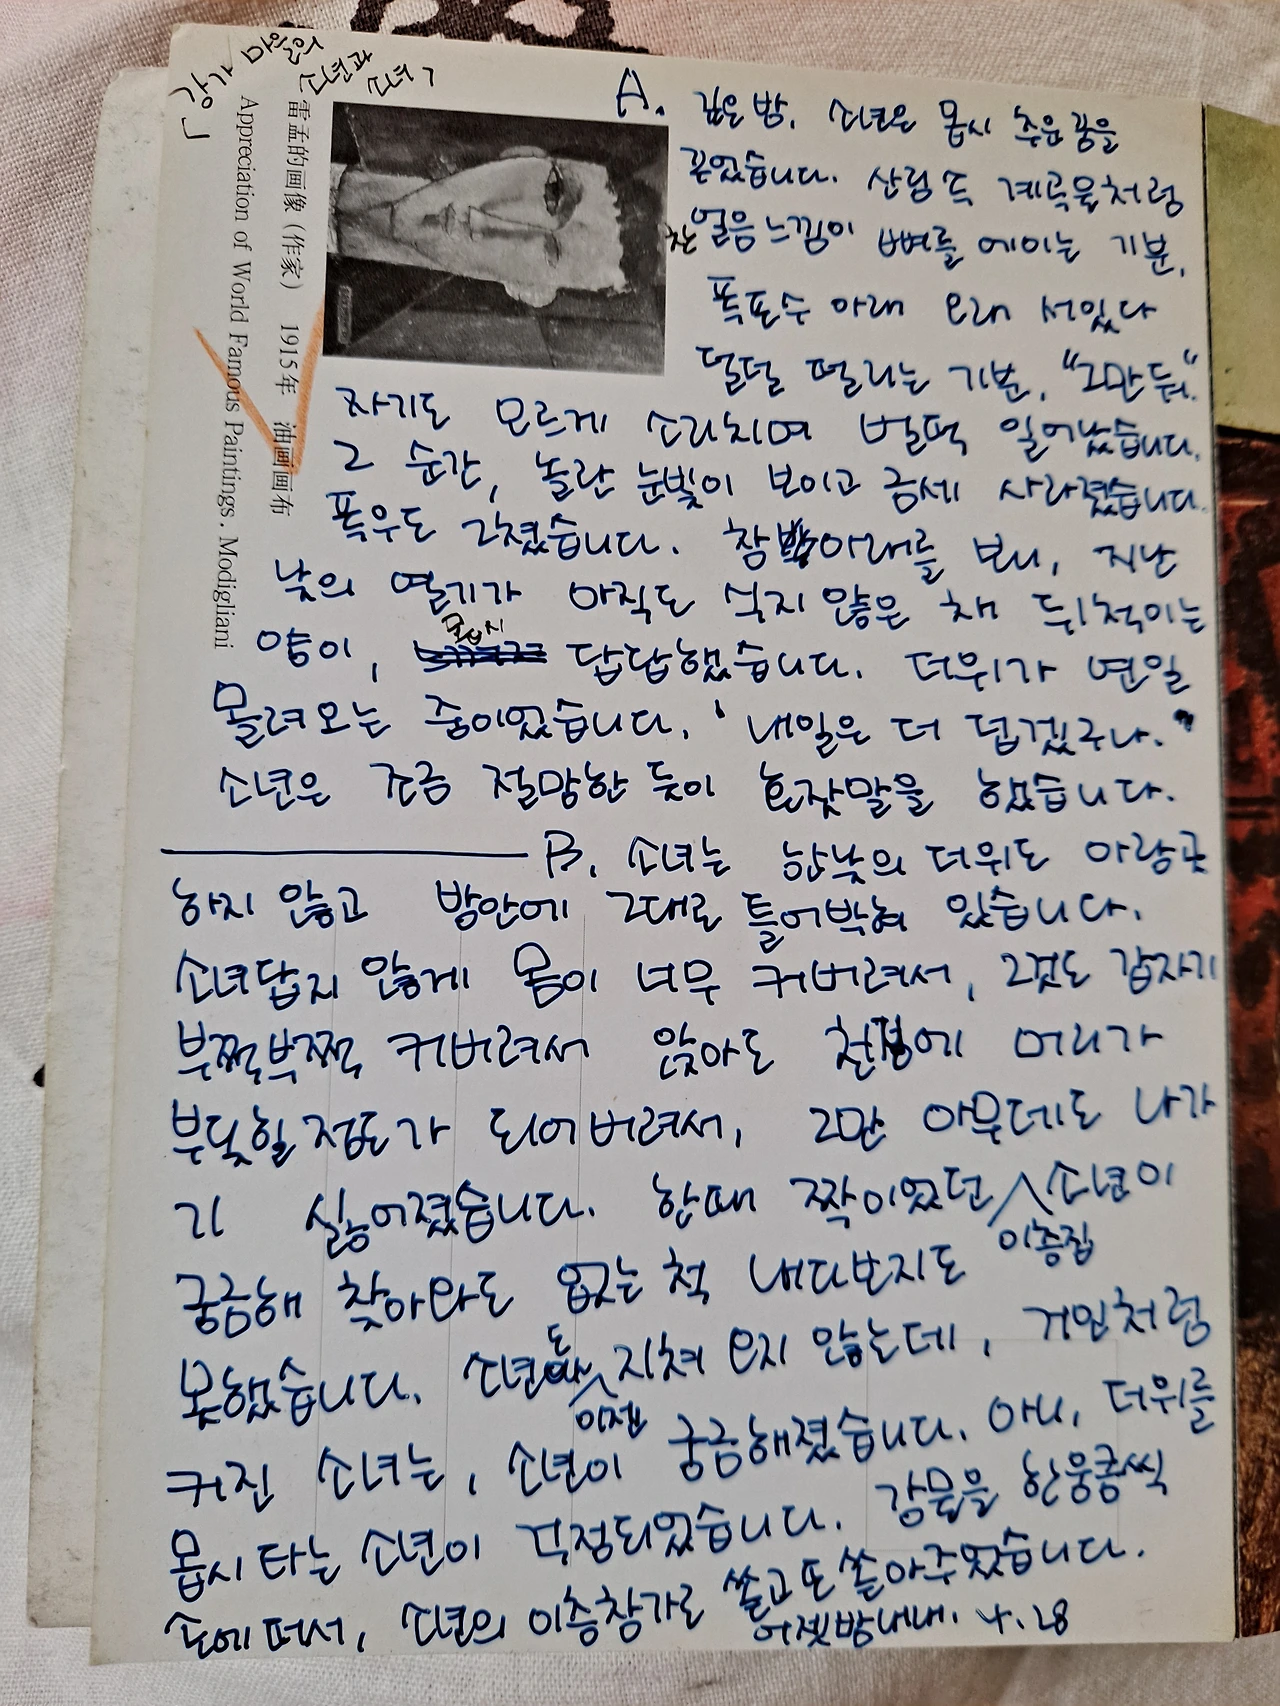 「강가 마을의
소년과 소녀」
雷孟的画像（作家） 1915年 油画画布
Appreciation of World Famous Paintings. Modigliani
A. 깊은 밤. 소년은 몹시 추운 꿈을
꾸었습니다. 산림 속 계곡물처럼
찬 얼음느낌이 뼈를 에이는 기분,
폭포수 아래 오래 서있다
덜덜 떨리는 기분. "그만둬."
자기도 모르게 소리치며 벌떡 일어났습니다.
그 순간, 놀란 눈빛이 보이고 금세 사라졌습니다.
폭우도 그쳤습니다. 창밖아래를 보니, 지난
낮의 열기가 아직도 식지 않은 채 뒤척이는
양이, 몹시 답답했습니다. 더위가 연일
몰려오는 중이었습니다. '내일은 더 덥겠구나.'
소년은 조금 절망한 듯이 혼잣말을 했습니다.
B. 소녀는 한낮의 더위도 아랑곳
하지 않고 방안에 그대로 틀어박혀 있습니다.
소녀답지 않게 몸이 너무 커버려서, 그것도 갑자기
부쩍부쩍 커버려서 앉아도 천정에 머리가
부딪힐 정도가 되어버려서, 그만 아무데도 나가
기 싫어졌습니다. 한때 짝이었던 이층집 소년이
궁금해 찾아와도 없는 척 내다보지도
못했습니다. 소년도 이젠 지쳐 오지 않는데, 거인처럼
커진 소녀는, 소년이 궁금해졌습니다. 아니, 더위를
몹시 타는 소년이 걱정되었습니다. 강물을 한웅큼씩
손에 떠서, 소년의 이층창가로 쏟고 또 쏟아주었습니다.
어젯밤내내. 4.28